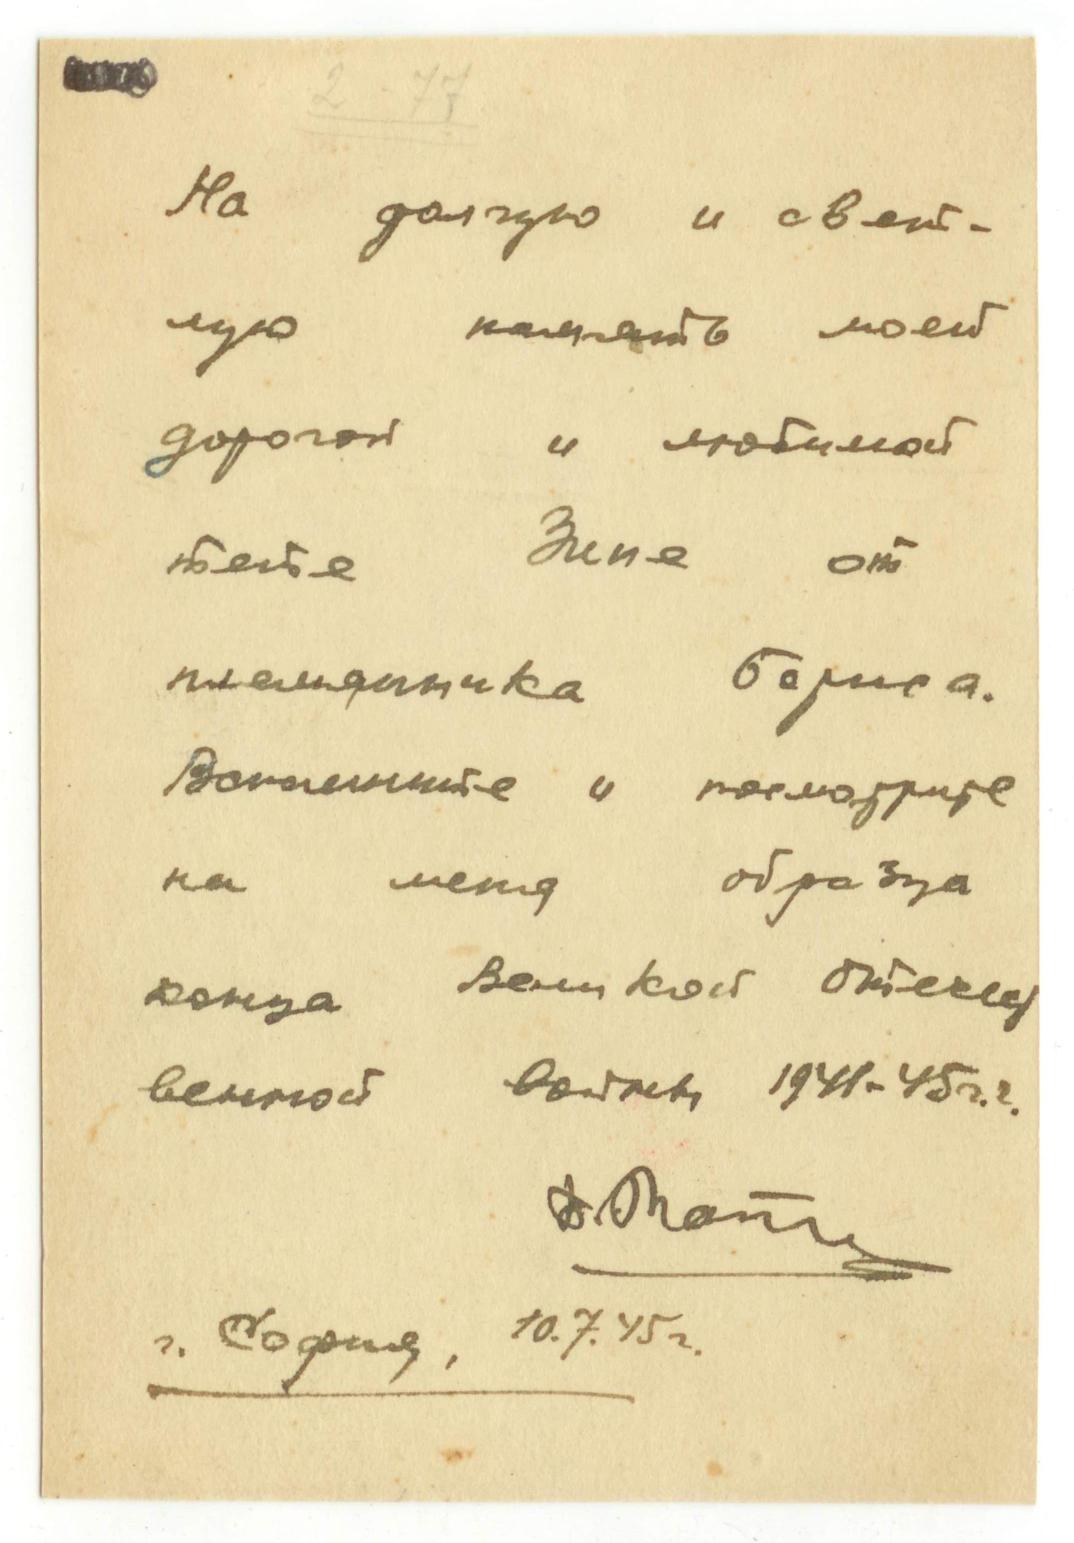 2 - 77
На долгую и свет-
лую память моей
дорогой и любимой
тете Зине от
племянника Бориса.
Вспомните и посмотрите
на меня образца
конца Великой Отечест
венной войны 1941-45г.г.
г. София, 10.7.45г.